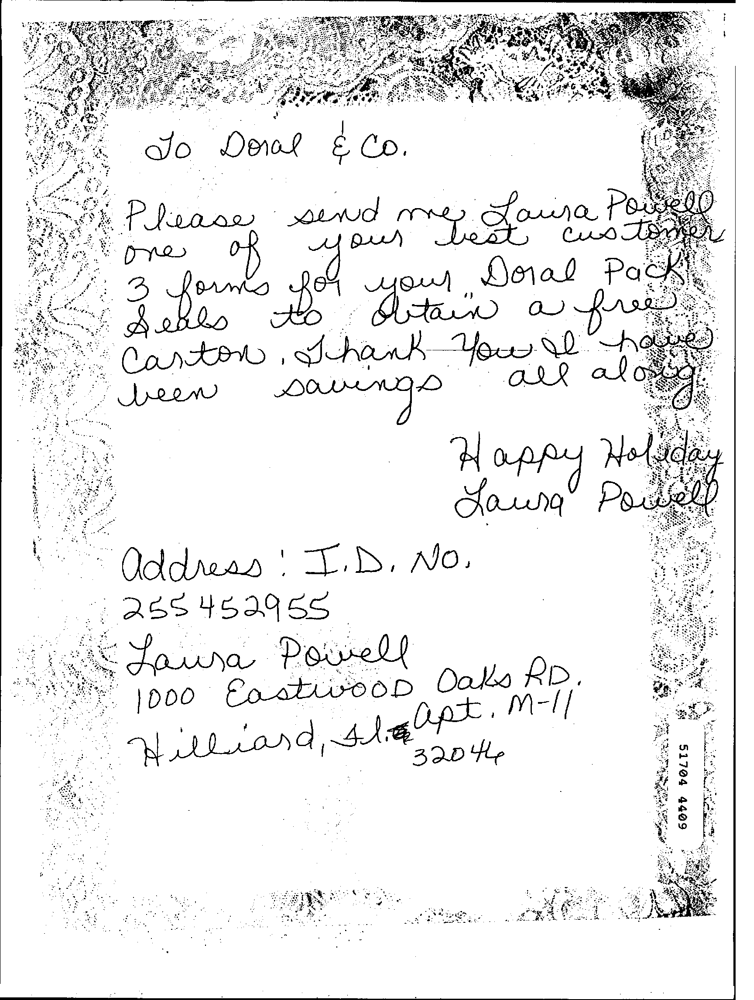 To Doral & Co.
Please send me Laura Powell
one of your best customer
3 forms for your Doral Pack
Seals to obtain a free
Carton. Thank You I have
been savings all along
Happy Holiday
Laura Powell
Address: I.D. No.
255452955
Laura Powell
1000 Eastwood Oaks RD.
Apt. M-11
Hilliard, Fl.
32046
51704 4409